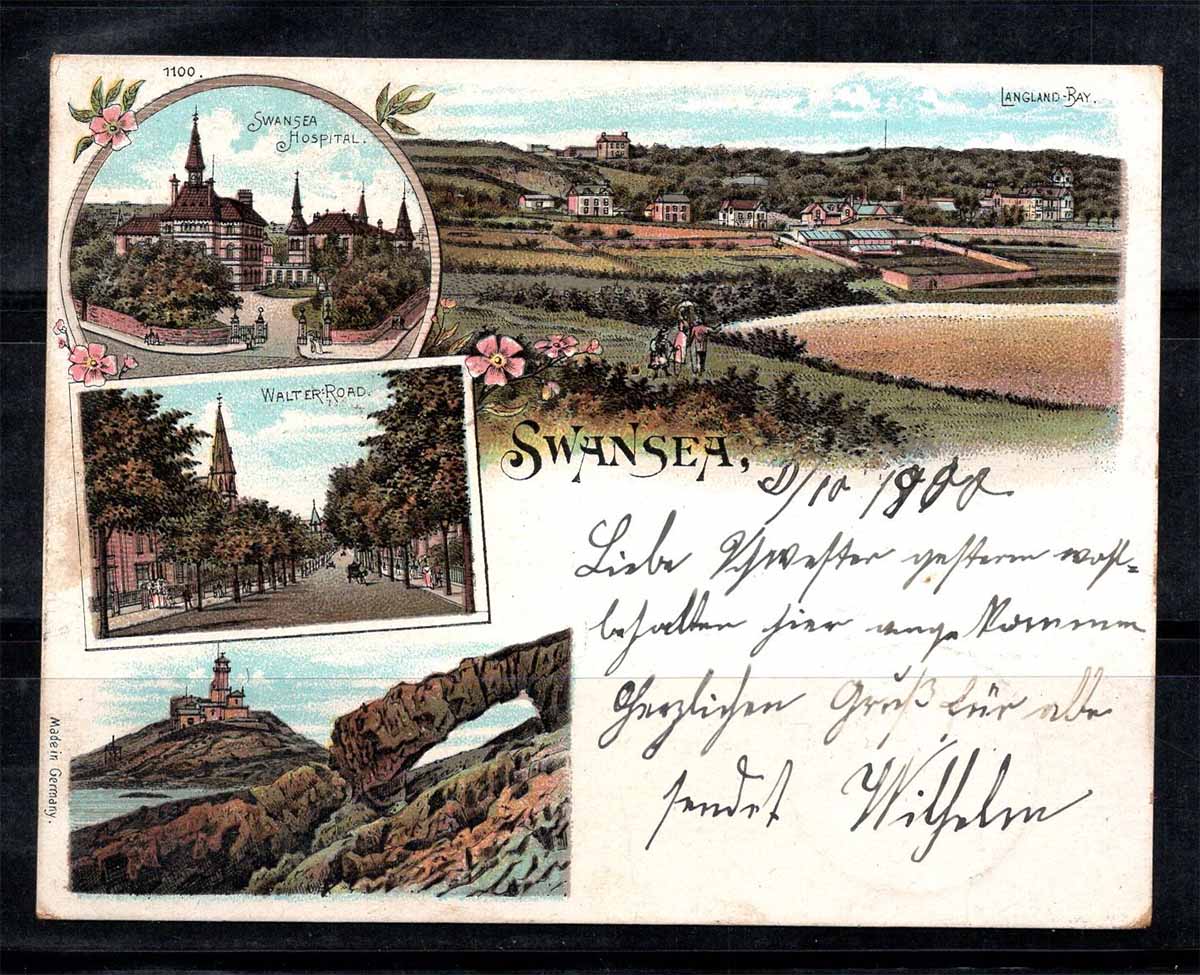 1100.
SWANSEA
HOSPITAL.
LANGLAND-BAY.
WALTER-ROAD.
SWANSEA,
/10 1900
Liebe Schwester gestern wohl-
behalten hier angekommen
Herzlichen Gruß für alle
sendet Wilhelm
Made in Germany.